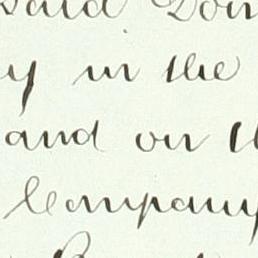 said Don
y in the
and on th
Company